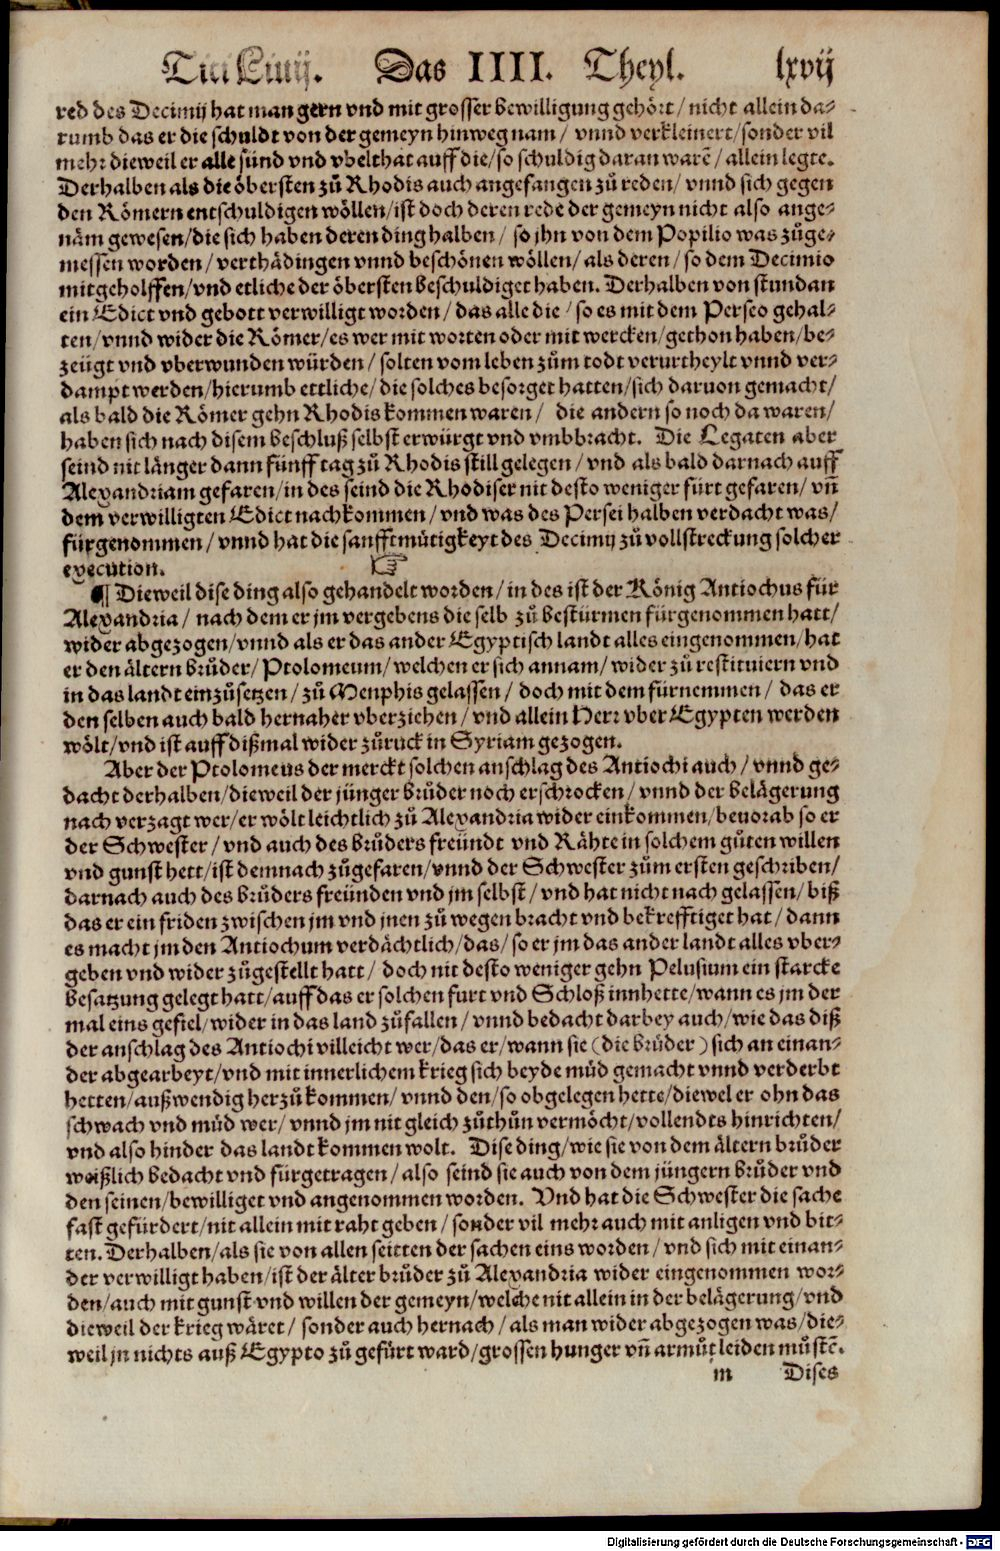 Titi Liuij. Das IIII. Theyl. lxvij
red des Decimij hat man gern vnd mit grosser bewilligung gehört/ nicht allein da-
rumb das er die schuldt von der gemeyn hinweg nam/ vnnd verkleinert/ sonder vil
mehr dieweil er alle sünd vnd vbelthat auff die/ so schuldig daran warē/ allein legte.
Derhalben als die öbersten zů Rhodis auch angefangen zů reden/ vnnd sich gegen
den Römern entschuldigen wöllen/ ist doch deren rede der gemeyn nicht also ange-
näm gewesen/ die sich haben deren ding halben/ so jhn von dem Popilio was zůge-
messen worden/ verthädingen vnnd beschönen wöllen/ als deren/ so dem Decimio
mitgeholffen/ vnd etliche der öbersten beschuldiget haben. Derhalben von stundan
ein Edict vnd gebott verwilligt worden/ das alle die/ so es mit dem Perseo gehal-
ten/ vnnd wider die Römer/ es wer mit worten oder mit wercken/ gethon haben/ be-
zeügt vnd vberwunden würden/ solten vom leben zům todt verurtheylt vnnd ver-
dampt werden/ hierumb ettliche/ die solches besorget hatten/ sich daruon gemacht/
als bald die Römer gehn Rhodis kommen waren/ die andern so noch da waren/
haben sich nach disem beschluß selbst erwürgt vnd vmbbracht. Die Legaten aber
seind nit länger dann fünff tag zů Rhodis still gelegen/ vnd als bald darnach auff
Alexandriam gefaren/ in des seind die Rhodiser nit desto weniger fürt gefaren/ vñ
dem verwilligten Edict nachkommen/ vnd was des Persei halben verdacht was/
fürgenommen/ vnnd hat die sanfftmütigkeyt des Decimij zů vollstreckung solcher
execution. ☞
¶ Dieweil dise ding also gehandelt worden/ in des ist der König Antiochus für
Alexandria/ nach dem er jm vergebens die selb zů bestürmen fürgenommen hatt/
wider abgezogen/ vnnd als er das ander Egyptisch landt alles eingenommen/ hat
er den ältern brůder/ Ptolomeum/ welchen er sich annam/ wider zů restituiern vnd
in das landt einzůsetzen/ zů Menphis gelassen/ doch mit dem fürnemmen/ das er
den selben auch bald hernaher vberziehen/ vnd allein Herr vber Egypten werden
wölt/ vnd ist auff dißmal wider zůruck in Syriam gezogen.
Aber der Ptolomeus der merckt solchen anschlag des Antiochi auch/ vnnd ge-
dacht derhalben/ dieweil der jünger brůder noch erschrocken/ vnnd der belägerung
nach verzagt wer/ er wölt leichtlich zů Alexandria wider einkommen/ beuorab so er
der Schwester/ vnd auch des brůders freündt vnd Rähte in solchem gůten willen
vnd gunst hett/ ist demnach zůgefaren/ vnnd der Schwester zům ersten geschriben/
darnach auch des brůders freünden vnd jm selbst/ vnd hat nicht nach gelassen/ biß
das er ein friden zwischen jm vnd jnen zů wegen bracht vnd bekrefftiget hat/ dann
es macht jm den Antiochum verdächtlich/ das/ so er jm das ander landt alles vber-
geben vnd wider zůgestellt hatt/ doch nit desto weniger gehn Pelusium ein starcke
besatzung gelegt hatt/ auff das er solchen furt vnd Schloß innhette/ wann es jm der
mal eins gefiel/ wider in das land zůfallen/ vnnd bedacht darbey auch/ wie das diß
der anschlag des Antiochi villeicht wer/ das er/ wann sie (die brüder) sich an einan-
der abgearbeyt/ vnd mit innerlichem krieg sich beyde můd gemacht vnnd verderbt
hetten/ außwendig herzů kommen/ vnnd den/ so obgelegen hette/ diewel er ohn das
schwach vnd můd wer/ vnnd jm nit gleich zůthůn vermöcht/ vollendts hinrichten/
vnd also hinder das landt kommen wolt. Dise ding/ wie sie von dem ältern brůder
weißlich bedacht vnd fürgetragen/ also seind sie auch von dem jüngern brůder vnd
den seinen/ bewilliget vnd angenommen worden. Vnd hat die Schwester die sache
fast gefürdert/ nit allein mit raht geben/ sonder vil mehr auch mit anligen vnd bit-
ten. Derhalben/ als sie von allen seitten der sachen eins worden/ vnd sich mit einan-
der verwilligt haben/ ist der älter brůder zů Alexandria wider eingenommen wor-
den/ auch mit gunst vnd willen der gemeyn/ welche nit allein in der belägerung/ vnd
dieweil der krieg wäret/ sonder auch hernach/ als man wider abgezogen was/ die-
weil jn nichts auß Egypto zů gefürt ward/ grossen hunger vñ armůt leiden můstē.
m Dises
Digitalisierung gefördert durch die Deutsche Forschungsgemeinschaft - DFG